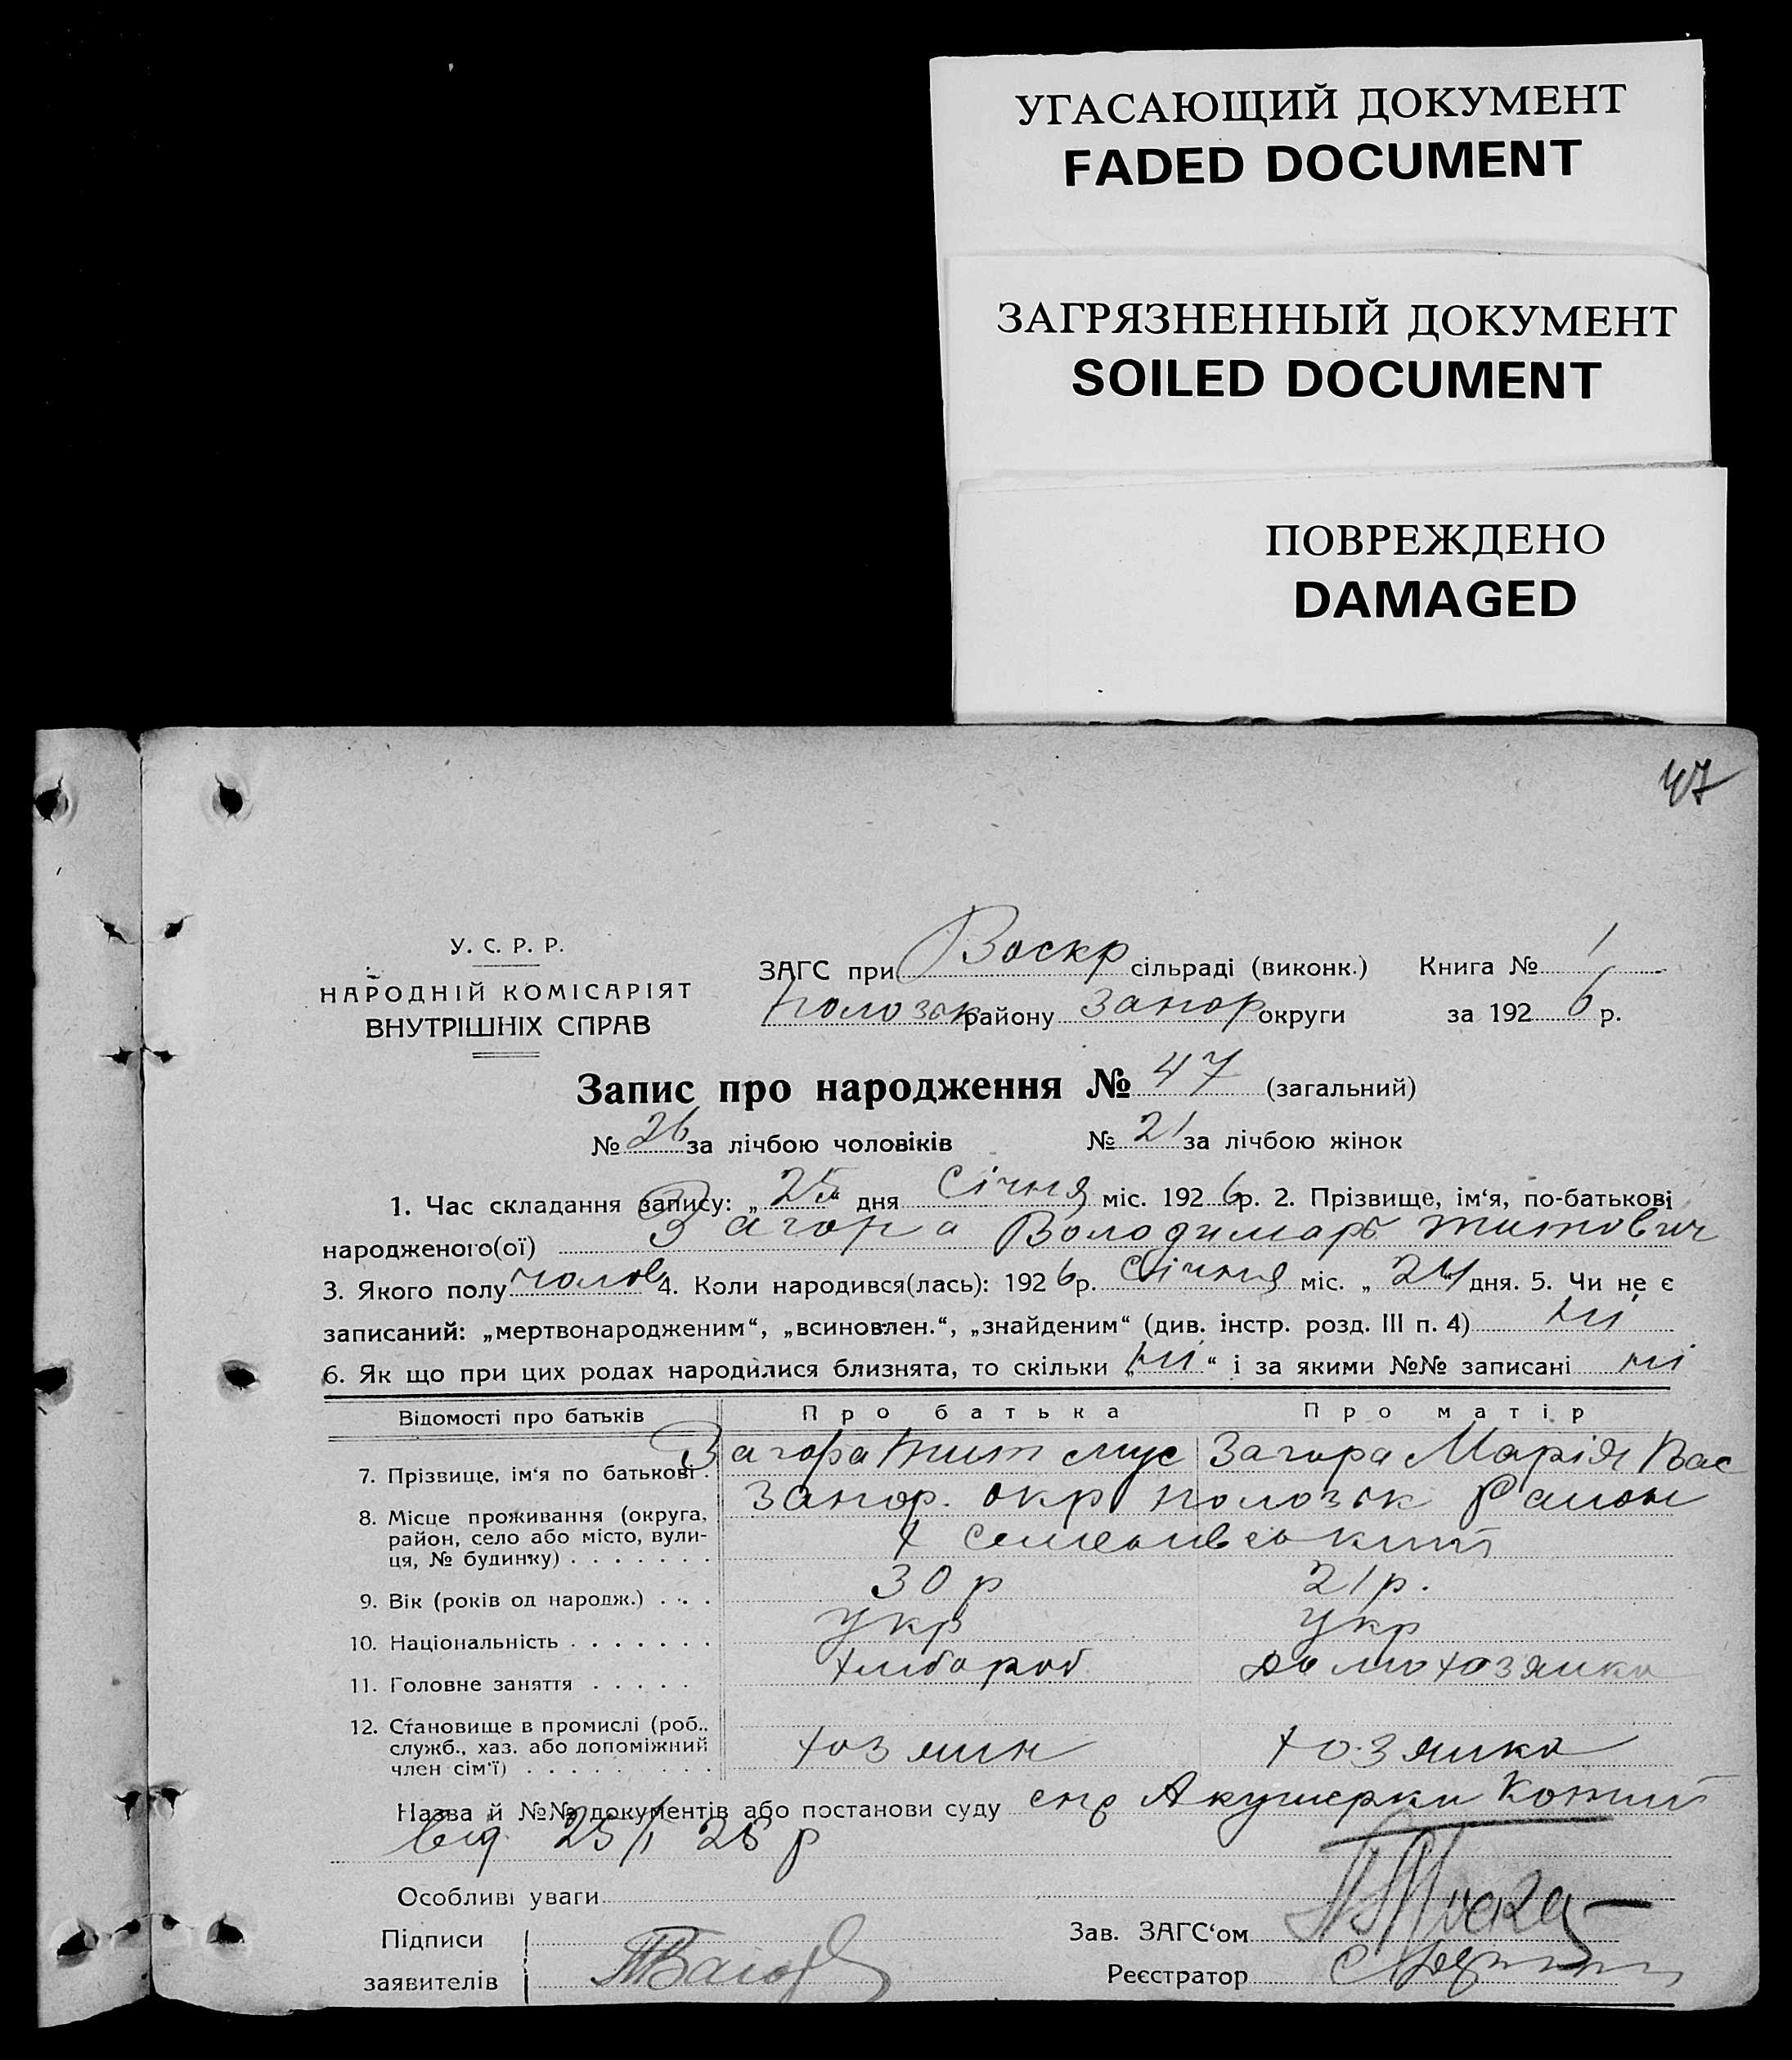 УГАСАЮЩИЙ ДОКУМЕНТ
FADED DOCUMENT
ЗАГРЯЗНЕННЫЙ ДОКУМЕНТ
SOILED DOCUMENT
ПОВРЕЖДЕНО
DAMAGED
47
У. С. Р. Р.
НАРОДНІЙ КОМІСАРІЯТ
ВНУТРІШНІХ СПРАВ
ЗАГС при Воскр сільраді (виконк.) Книга № 1
Полозьк району Запор округи за 1926 р.
Запис про народження № 47 (загальний)
№ 26 за лічбою чоловіків № 21 за лічбою жінок
1. Час складання запису: „25“ дня Січня міс. 1926 р. 2. Прізвище, ім‘я, по-батькові
народженого(ої) Загора Володимар Титович
3. Якого полу чолов 4. Коли народився(лась): 1926 р. Січня міс. „24“ дня. 5. Чи не є
записаний: „мертвонародженим“, „всиновлен.“, „знайденим“ (див. інстр. розд. III п. 4) ні
6. Як що при цих родах народилися близнята, то скільки „ні“ і за якими №№ записані ні
Відомості про батьків Про батька Про матір
7. Прізвище, ім‘я по батькові . Загора Тит Мус Загора Марія Вас
8. Місце проживання (округа, район, село або місто, вулиця, № будинку) . . . . . . . Запор. окр Полозьк Район
х Семенівський
9. Вік (років од народж.) . . . 30 р 21 р.
10. Національність . . . . . . . укр укр
11. Головне заняття . . . . . хлибороб домохозяйка
12. Становище в промислі (роб., служб., хаз. або допоміжний член сім‘ї) . . . . . . . . . хозяин хозяйка
Назва й №№ документів або постанови суду спр Акушерки
від 25/I 26 р
Особливі уваги
Підписи
заявителів
Зав. ЗАГС‘ом
Реєстратор